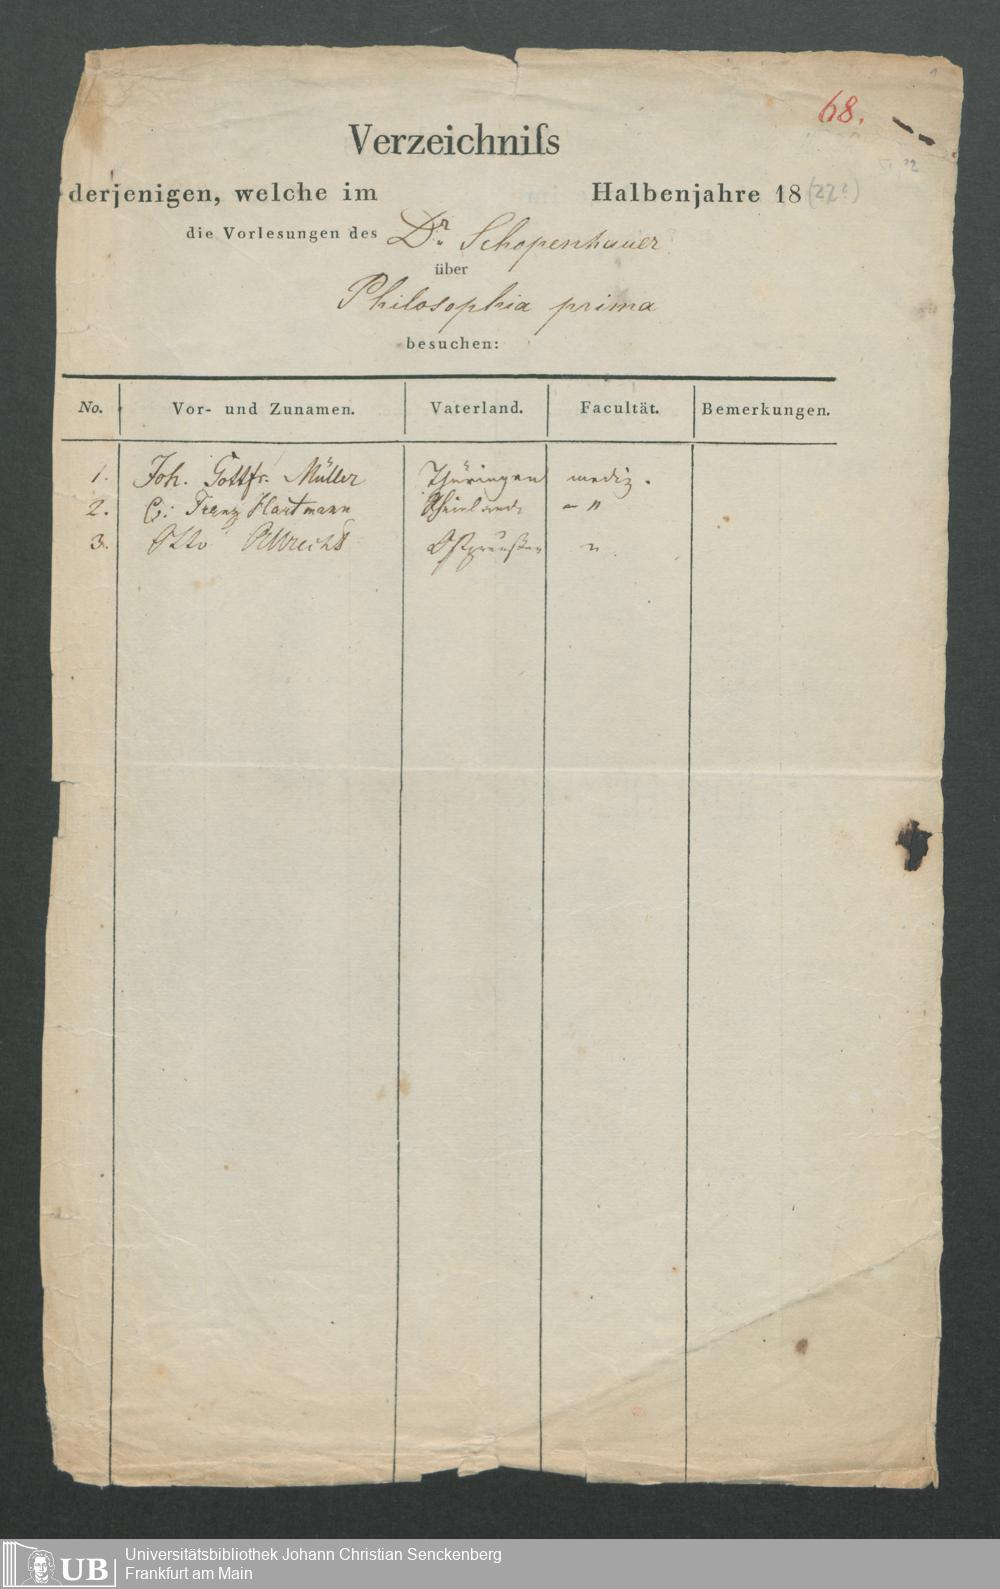 68.
Verzeichniſs
derjenigen, welche im Halbenjahre 18 (22?)
die Vorlesungen des Dr. Schopenhauer
über
Philosophia prima
besuchen:
No. Vor- und Zunamen. Vaterland. Facultät. Bemerkungen.
1. Joh. Gottfr. Müller Thüringen mediz.
2. Franz Hartmann Rheinland - "
3. Otto Albrecht Ostpreußen "
UB Universitätsbibliothek Johann Christian Senckenberg
Frankfurt am Main